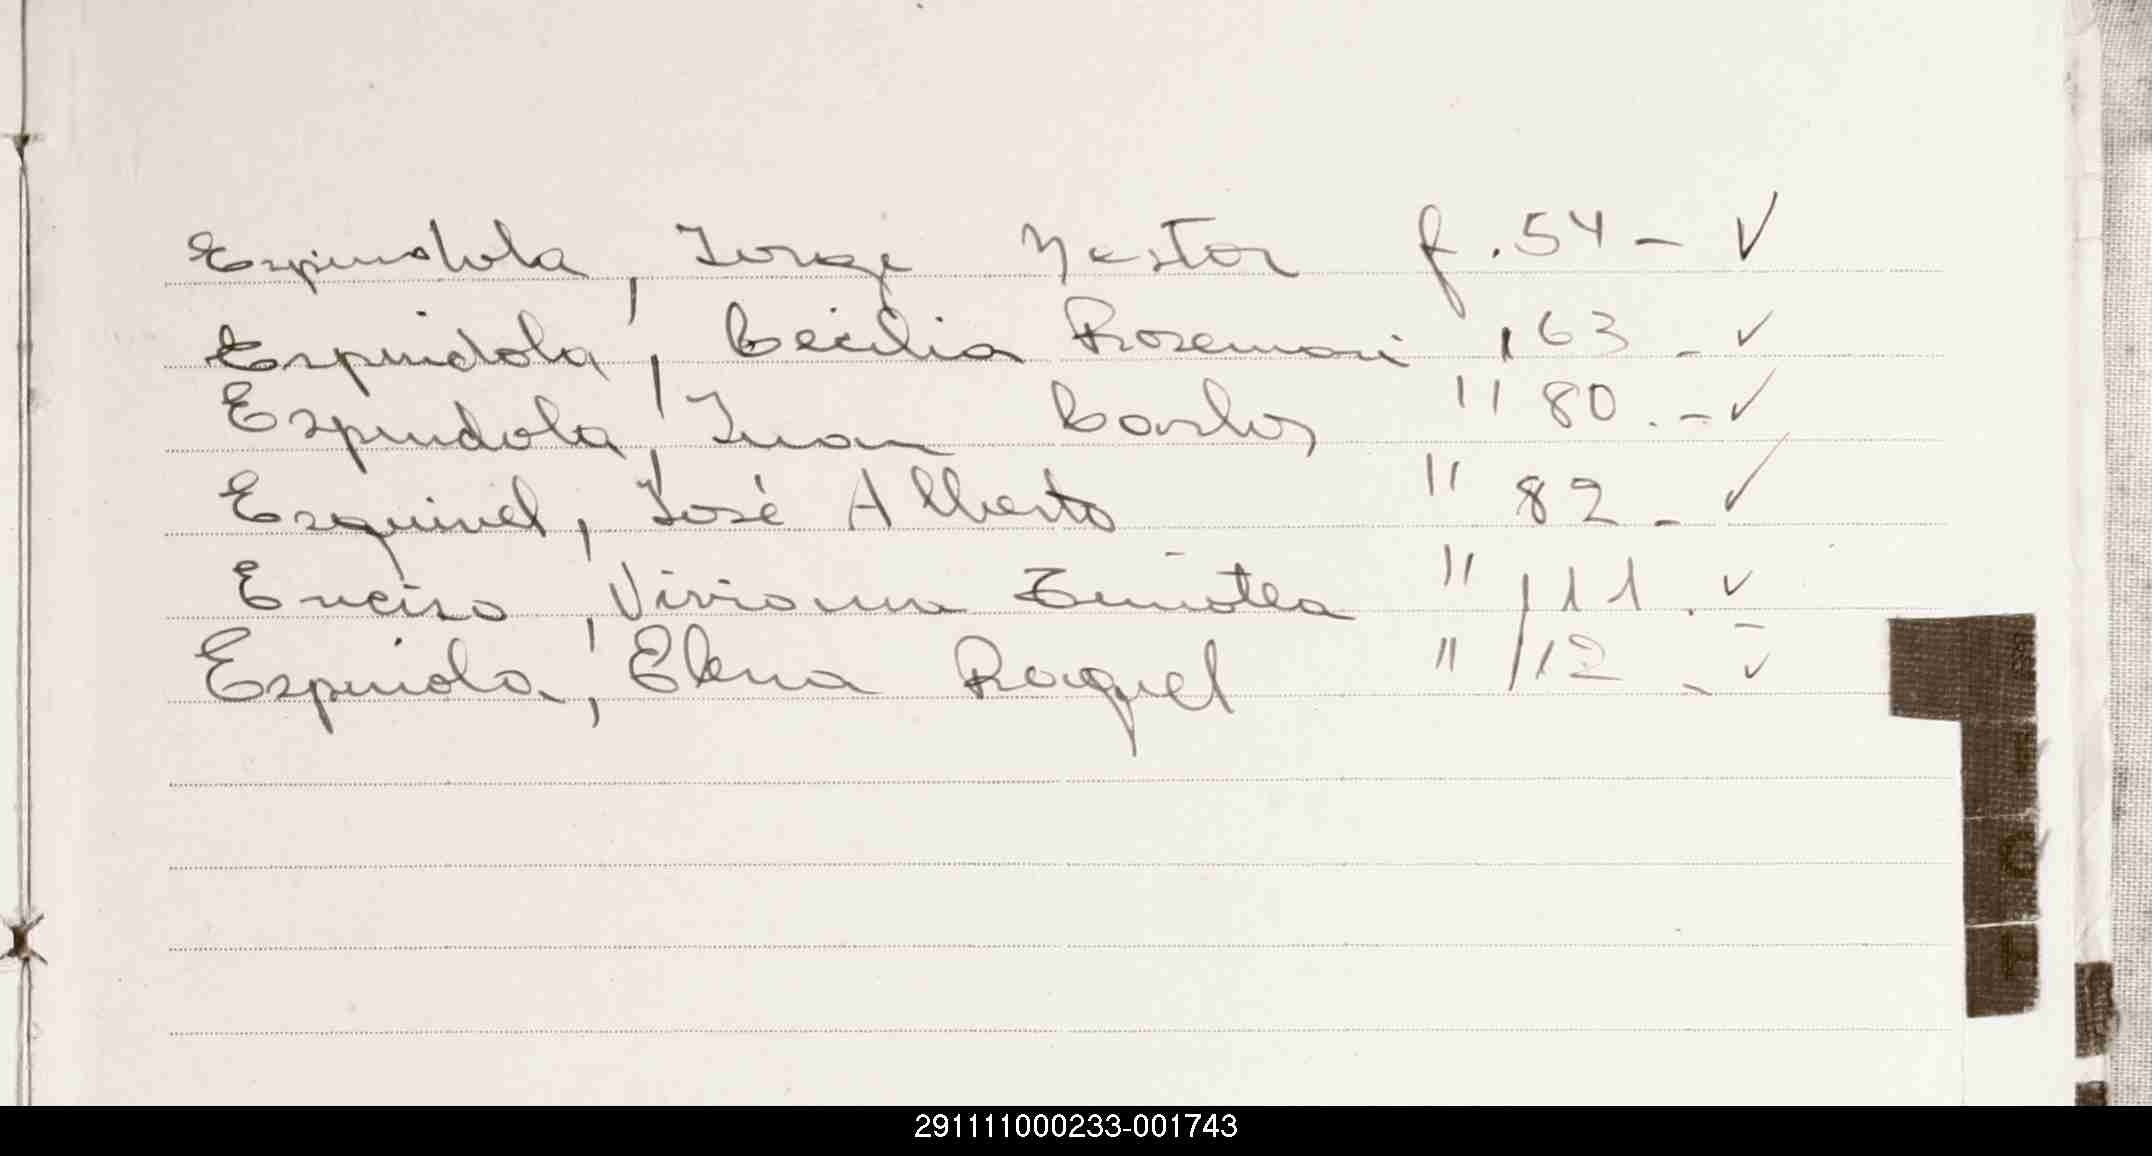 Espindola, Jorge Nestor f. 54 - ✓
Espindola, Cecilia Rosemari , 63 - ✓
Espindola, Juan Carlos " 80. - ✓
Esquivel, José Alberto " 82 - ✓
Enciso, Viviana Timotea " 111. ✓
Espinola, Elena Raquel " 112 - ✓
291111000233-001743